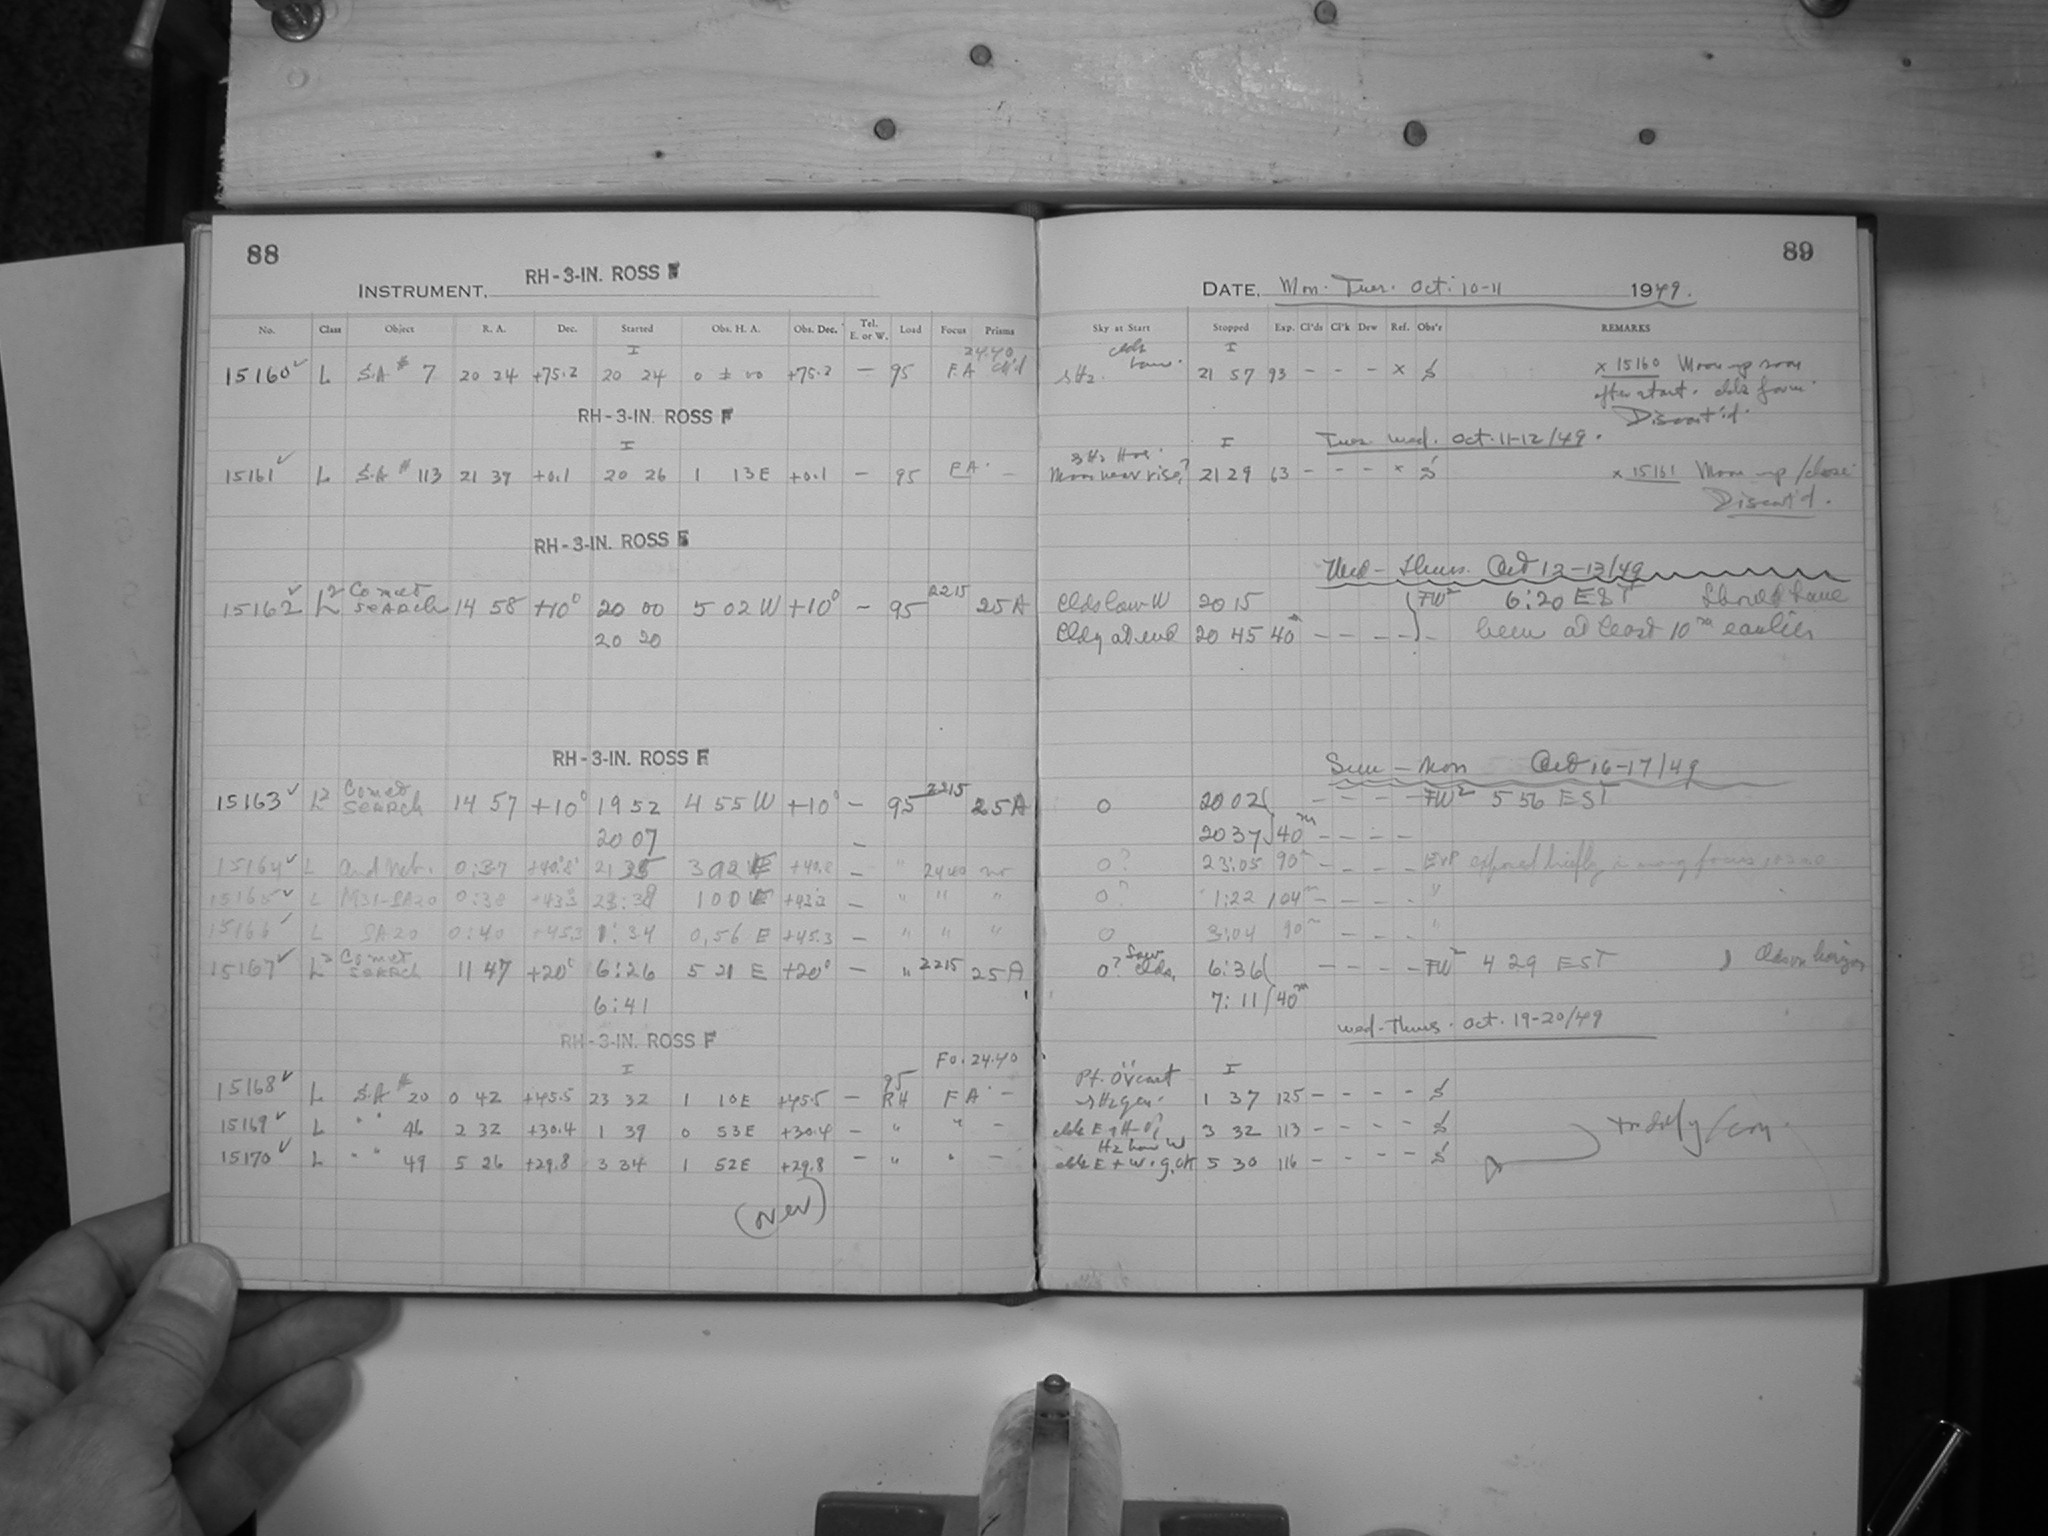 88
RH-3-IN. ROSS F
INSTRUMENT,
No. Class Object R. A. Dec. Started Obs. H. A. Obs. Dec. Tel. E. or W. Load Focus Prisms
I 24.40
15160 ✓ L S.A # 7 20 24 +75.2 20 24 0 ± 00 +75.2 — 95 F.A
RH-3-IN. ROSS F
I
15161 ✓ L S.A # 113 21 39 +0.1 20 26 1 13E +0.1 — 95 F.A. —
RH-3-IN. ROSS F
15162 ✓ L2 Comet SEARCH 14 58 +10° 20 00 5 02 W +10° — 95 2215 25A
20 20
RH-3-IN. ROSS F
15163 ✓ L2 Comet SEARCH 14 57 +10° 19 52 4 55 W +10° — 95 2215 25A
20 07 —
15164 ✓ L And Neb. 0:37 +40.8 21 35 3 02 E +40.8 — " 2440 no
15165 ✓ L M31-SA20 0:38 +43.3 23:38 1 00 E +43.3 — " " "
15166 ✓ L SA20 0:40 +45.3 1:34 0,56 E +45.3 — " " "
15167 ✓ L2 Comet SEARCH 11 47 +20° 6:26 5 21 E +20° — " 2215 25A
6:41
RH-3-IN. ROSS F
I Fo. 24.40
15168 ✓ L S.A # 20 0 42 +45.5 23 32 1 10E +45.5 — 95 RH F A. —
15169 ✓ L " " 46 2 32 +30.4 1 39 0 53E +30.4 — " " —
15170 ✓ L " " 49 5 26 +29.8 3 34 1 52E +29.8 — " " —
(over)
89
DATE, Mon. Tues. Oct. 10-11 1949.
Sky at Start Stopped Exp. Cl'ds Cl'k Dew Ref. Obs'r REMARKS
clds low. I
sHz. 21 57 93 - - - x S x 15160 Moon up soon
after start. clds form.
Discont'd.
I Tues. Wed. Oct. 11-12/49.
Moon near rise? 21 29 63 - - - x S x 15161 Moon up/close
Discont'd.
Wed - Thurs. Oct 12-13/49
Clds low W 20 15 FW2 6:20 EST Should have
Cldy at end 20 45 40m - - - - been at least 10m earlier
Sun - Mon Oct 16-17/49
0 20 02 - - - - FW2 5 56 EST
20 37 40m - - - -
0? 23:05 90m - - - exposed briefly in wrong focus
0? 1:22 104m - - - - "
0 3:04 90m - - - "
0? Some clds, 6:36 - - - - FW2 4 29 EST Clds on horizon
7:11 40m
Wed. Thurs. Oct. 19-20/49
Pt. Ov'cast I
sHz gen. 1 37 125 - - - - S
3 32 113 - - - - S
Hz low W
clds E + W. 5 30 116 - - - - S